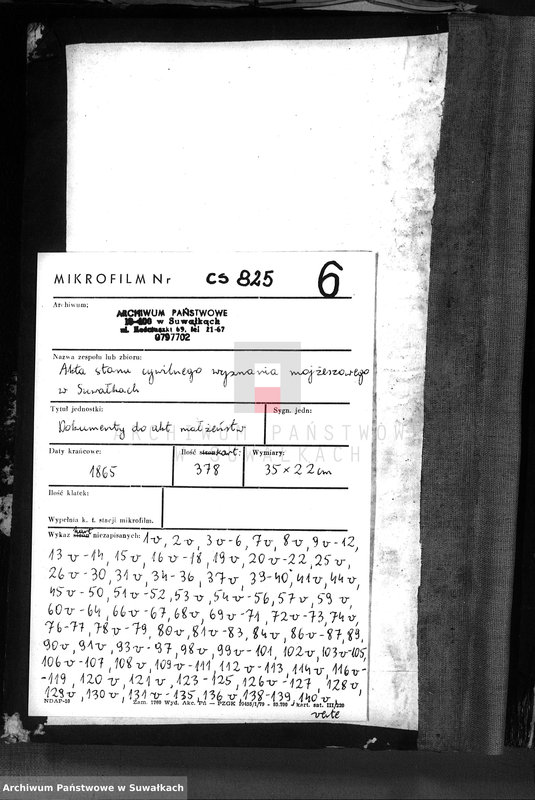 MIKROFILM Nr CS 825 6
Archiwum:
ARCHIWUM PAŃSTWOWE
16-400 w Suwałkach
ul. Kościuszki 69, tel 21-67
0797702
Nazwa zespołu lub zbioru:
Akta stanu cywilnego wyznania mojżeszowego
w Suwałkach
Tytuł jednostki: Sygn. jedn:
Dokumenty do akt małżeństw
Daty krańcowe: Ilość kart: Wymiary:
1865 378 35 × 22 cm
Ilość klatek:
Wypełnia k. t. stacji mikrofilm.
Wykaz kart niezapisanych: 1v, 2v, 3v-6, 7v, 8v, 9v-12,
13v-14, 15v, 16v-18, 19v, 20v-22, 25v,
26v-30, 31v, 34-36, 37v, 39-40, 41v, 44v,
45v-50, 51v-52, 53v, 54v-56, 57v, 59v,
60v-64, 66v-67, 68v, 69v-71, 72v-73, 74v,
76-77, 78v-79, 80v, 81v-83, 84v, 86v-87, 89,
90v, 91v, 93v-97, 98v, 99v-101, 102v, 103v-105,
106v-107, 108v, 109v-111, 112v-113, 114v, 116v-
-119, 120v, 121v, 123-125, 126v-127, 128v,
129v, 130v, 131v-135, 136v, 138-139, 140v,
NDAP-58 Zam. 1760 Wyd. Akc. Pń — PZGK kart. sat. III/220
verte
ARCHIWUM PAŃSTWOWE
W SUWAŁKACH
Archiwum Państwowe w Suwałkach